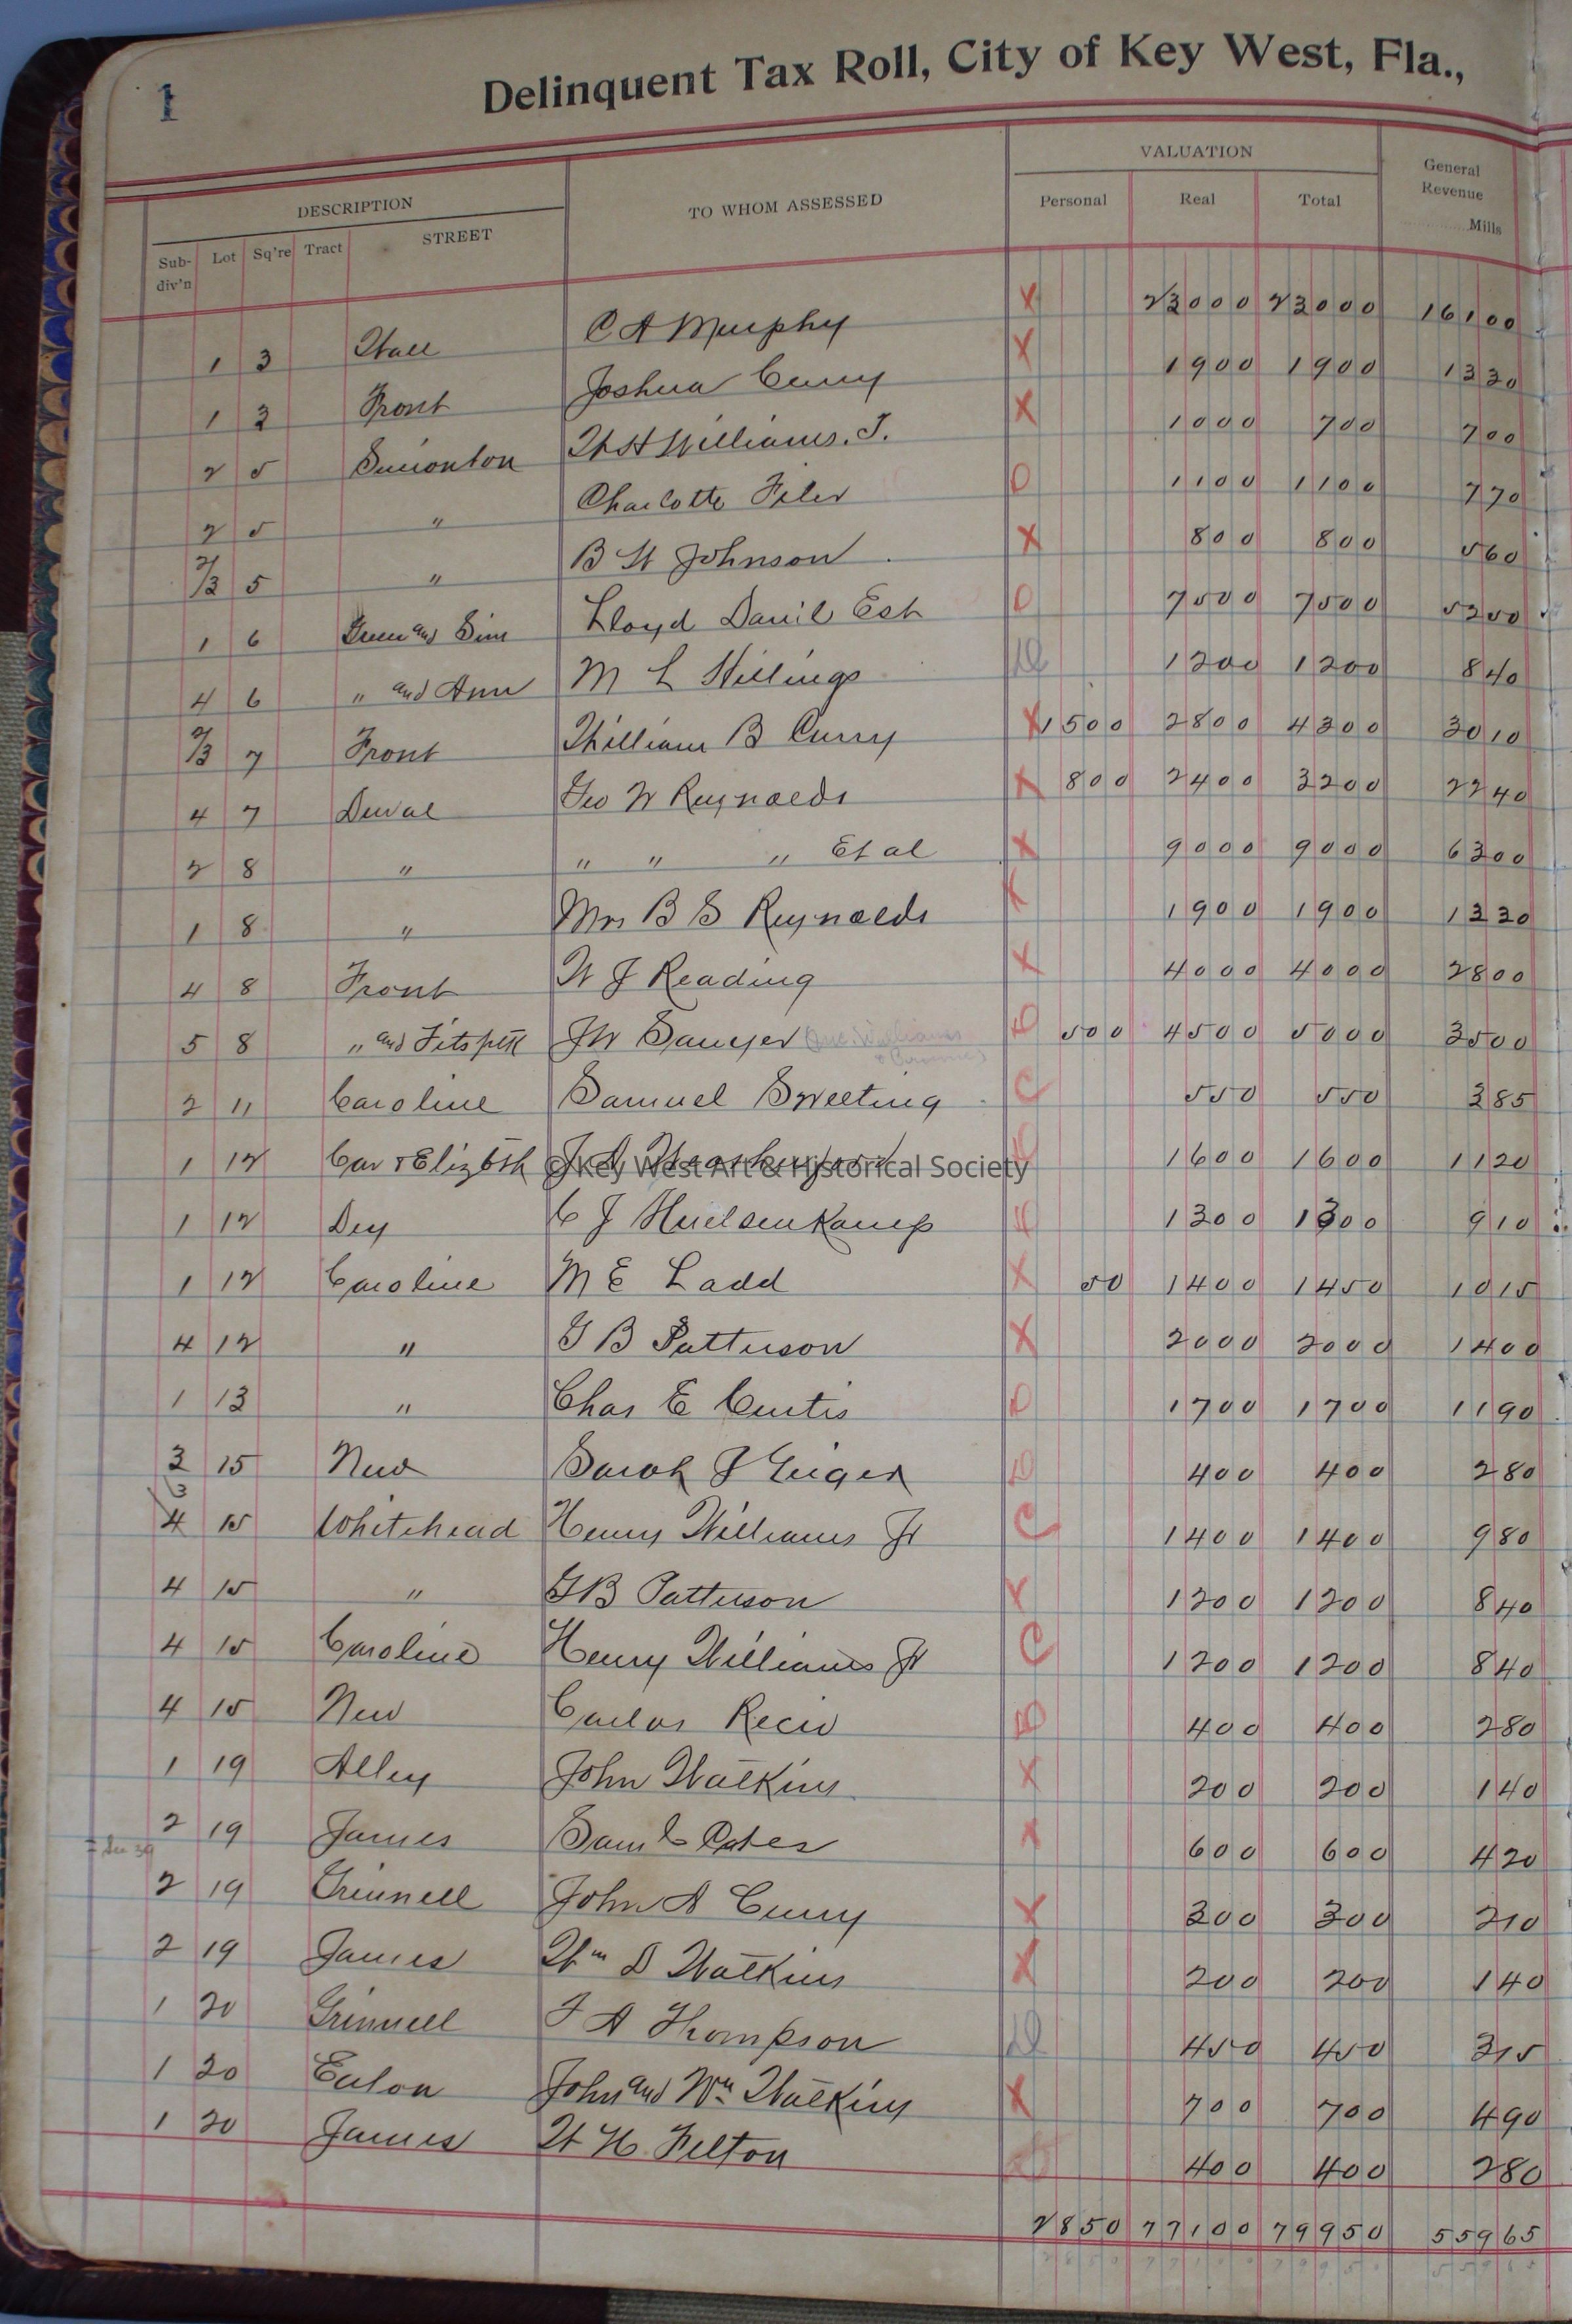 1
Delinquent Tax Roll, City of Key West, Fla.,
DESCRIPTION TO WHOM ASSESSED VALUATION General Revenue Mills
Sub-div'n Lot Sq're Tract STREET Personal Real Total
1 3 Wall C A Murphy X 23000 23000 16100
1 3 Front Joshua Curry X 1900 1900 1330
2 5 Simonton W H Williams. J. X 1000 700 700
2 5 " Charlotte Filer O 1100 1100 770
2/3 5 " B W Johnson X 800 800 560
1 6 Green and Sim Lloyd Davil Est O 7500 7500 5250
4 6 " and Ann M L Hillings 1200 1200 840
2/3 7 Front William B Curry X 1500 2800 4300 3010
4 7 Duval Geo W Reynolds X 800 2400 3200 2240
2 8 " " " " Et al X 9000 9000 6300
1 8 " Mrs B S Reynolds X 1900 1900 1330
4 8 Front W J Reading X 4000 4000 2800
5 8 " and Fitzptk J W Sawyer 500 4500 5000 3500
2 11 Caroline Samuel Sweeting C 550 550 385
1 12 Car & Elizbth J A 1600 1600 1120
© Key West Art & Historical Society
1 12 Dey C J Huelsenkamp 1300 1300 910
1 12 Caroline M E Ladd X 50 1400 1450 1015
4 12 " G B Patterson X 2000 2000 1400
1 13 " Chas E Curtis 1700 1700 1190
3 15 New Sarah J Geiger 400 400 280
4 15 Whitehead Henry Williams Jr C 1400 1400 980
4 15 " G B Patterson X 1200 1200 840
4 15 Caroline Henry Williams Jr C 1200 1200 840
4 15 New Carlos Recio B 400 400 280
1 19 Alley John Watkins X 200 200 140
2 19 James Sam C Cates X 600 600 420
2 19 Grinnell John A Curry X 300 300 210
2 19 James Wm D Watkins X 200 200 140
1 20 Grinnell F A Thompson 450 450 315
1 20 Eaton John and Wm Watkins X 700 700 490
1 20 James W H Felton 400 400 280
2850 77100 79950 55965